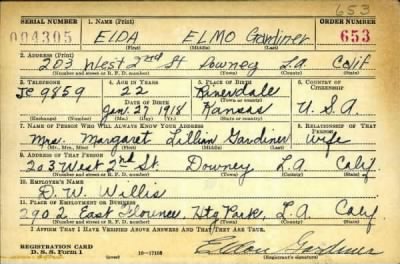 653
SERIAL NUMBER 1. NAME (Print) ORDER NUMBER
004305 ELDA ELMO Gardiner 653
(First) (Middle) (Last)
2. ADDRESS (Print)
203 West 2nd St Downey L.A. Calif
(Number and street or R. F. D. number) (Town) (County) (State)
3. TELEPHONE 4. AGE IN YEARS 5. PLACE OF BIRTH 6. COUNTRY OF CITIZENSHIP
JE 9859 22
DATE OF BIRTH (Town or county)
Jan. 27 1918 Kansas U.S.A.
(Exchange) (Number) (Mo.) (Day) (Yr.) (State or country)
7. NAME OF PERSON WHO WILL ALWAYS KNOW YOUR ADDRESS 8. RELATIONSHIP OF THAT PERSON
Mrs. Margaret Lillian Gardiner Wife
(Mr., Mrs., Miss) (First) (Middle) (Last)
9. ADDRESS OF THAT PERSON
203 West 2nd St. Downey L.A. Calif
(Number and street or R. F. D. number) (Town) (County) (State)
10. EMPLOYER'S NAME
D. W. Willis
11. PLACE OF EMPLOYMENT OR BUSINESS
2902 East Florence, Htg Park, L.A. Calif
(Number and street or R. F. D. number) (Town) (County) (State)
I AFFIRM THAT I HAVE VERIFIED ABOVE ANSWERS AND THAT THEY ARE TRUE.
REGISTRATION CARD
D. S. S. Form 1 (over) Gardiner
(Registrant's signature)